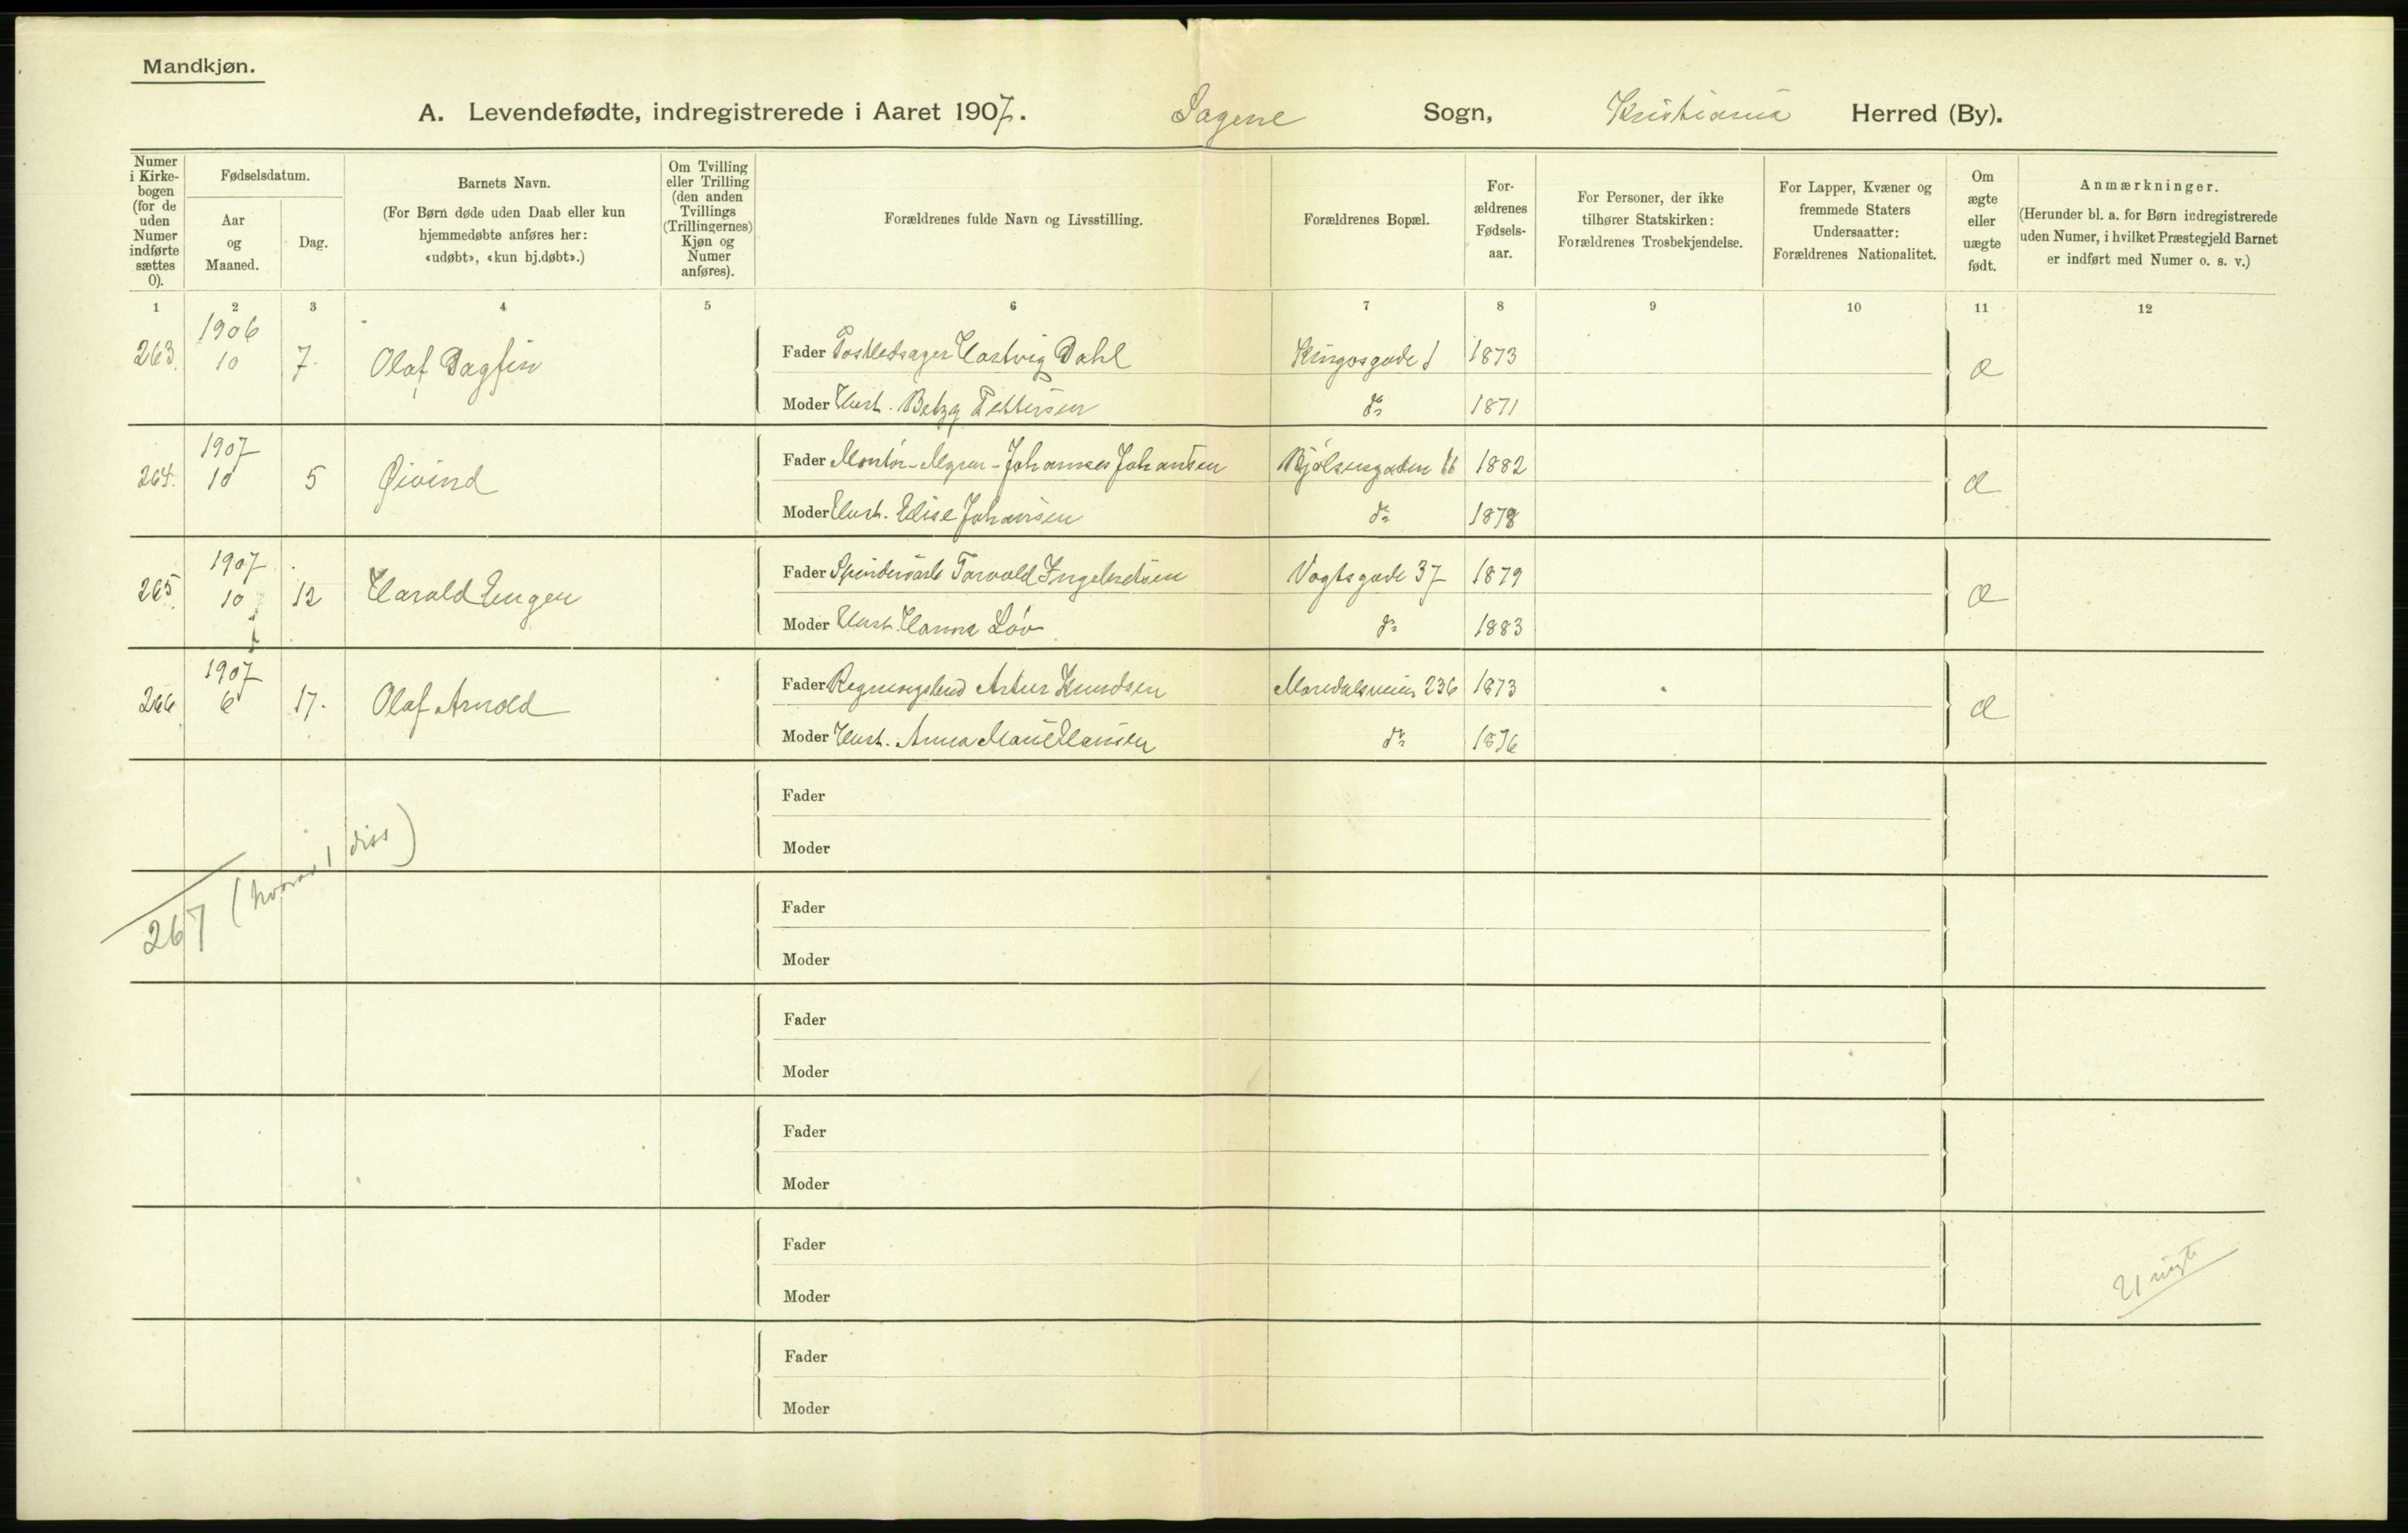 Mandkjøn.
A. Levendefødte, indregistrerede i Aaret 1907. Sagene Sogn, Kristiania Herred (By).
Numer i Kirkebogen (for de uden Numer indførte sættes 0).
Fødselsdatum.
Aar og Maaned.
Dag.
Barnets Navn.
(For Børn døde uden Daab eller kun hjemmedøbte anføres her: «udøbt», «kun hj.døbt».)
Om Tvilling eller Trilling (den anden Tvillings (Trillingernes) Kjøn og Numer anføres).
Forældrenes fulde Navn og Livsstilling.
Forældrenes Bopæl.
Forældrenes Fødselsaar.
For Personer, der ikke tilhører Statskirken: Forældrenes Trosbekjendelse.
For Lapper, Kvæner og fremmede Staters Undersaatter: Forældrenes Nationalitet.
Om ægte eller uægte født.
Anmærkninger.
(Herunder bl. a. for Børn indregistrerede uden Numer, i hvilket Præstegjeld Barnet er indført med Numer o. s. v.)
1 2 3 4 5 6 7 8 9 10 11 12
263. 1906 10 7. Olaf Dagfin Fader Postledsager Hartvig Dahl Kingosgade 1 1873 æ
Moder Hust. Betzy Pettersen do 1871
264. 1907 10 5 Øivind Fader Montør Johannes Johansen Bjølsengaden 1882 æ
Moder Hust. Elise Johansen do 1878
265. 1907 10 12 Harald Eugen Fader Torvald Ingebretsen Vogtsgade 37 1879 æ
Moder Hust. Hanna Løv do 1883
266. 1907 6 17. Olaf Arnold Fader Artur Knudsen Maridalsveien 236 1873 æ
Moder Hust. Anna Marie Hansen do 1876
Fader
Moder
267 (hvorav 1 diss)
Fader
Moder
Fader
Moder
Fader
Moder
Fader
Moder
21 uægte
Fader
Moder